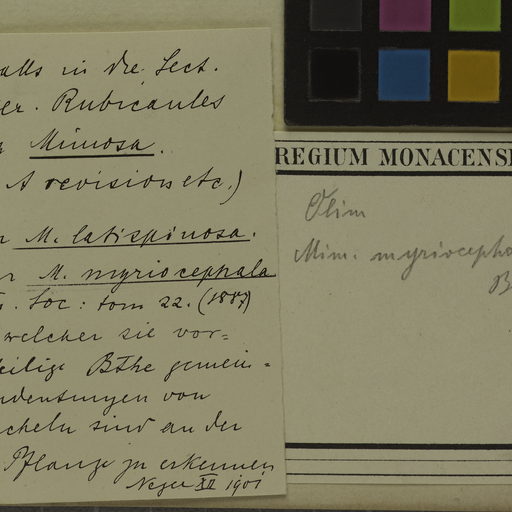 alls in die Sect.
er. Rubicaules
Mimosa.
A revision etc.)
M. latispinosa.
M. myriocephala
Soc: tom 22. (1887)
welcher sie vor=
eilige Bthe gemein=
ndeutungen von
cheln sind an der
Pflanze zu erkennen
XII 1901
REGIUM MONACENS
Olim
Mim. myriocepha
B